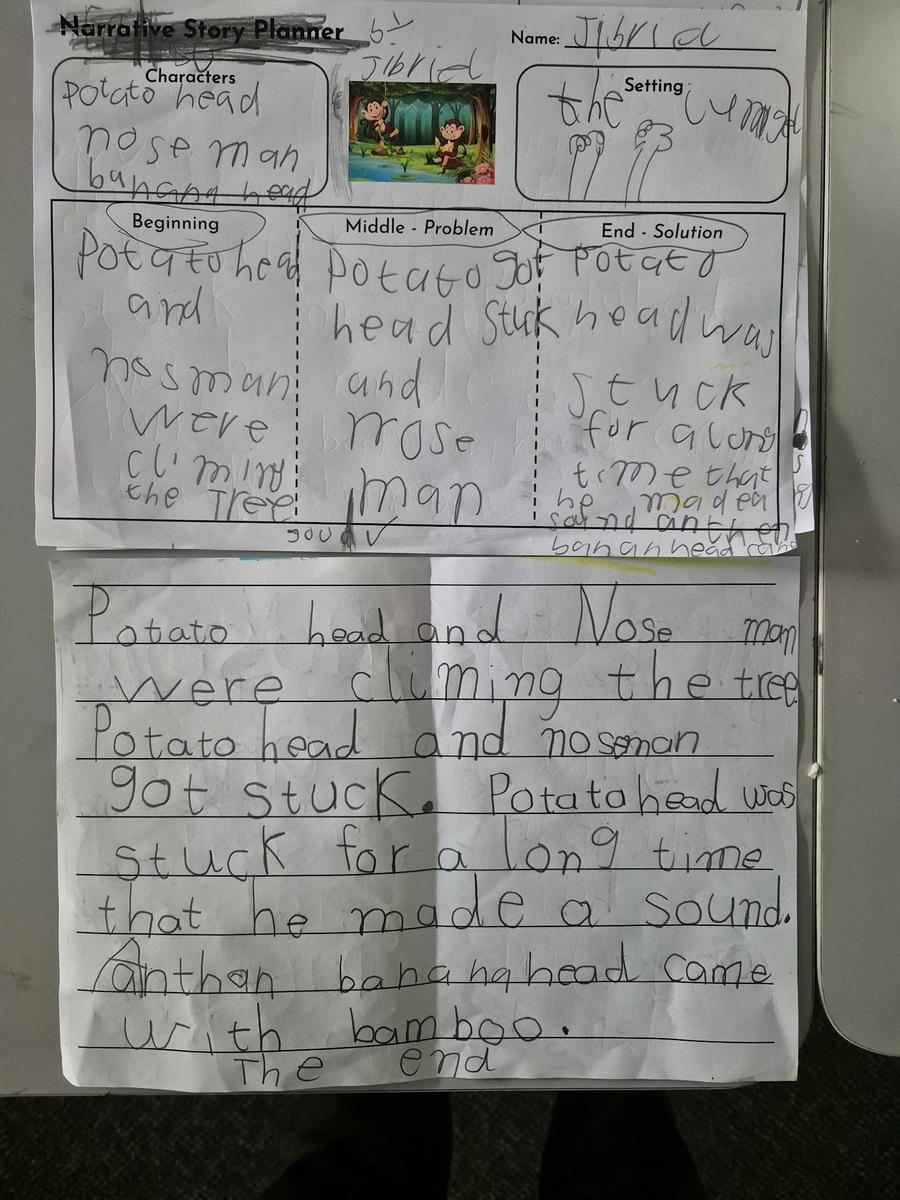 Narrative Story Planner
by
Jibriel
Name: Jibriel
Characters
Potato head
nose man
banana head
Setting
the
Beginning
Potato head
and
nosman
were
climing
the Tree
Middle - Problem
Potato got
head Stuck
and
nose
man
End - Solution
Potato
head was
stuck
for a long
time that
he made a
sound an then
banan head came
good ✓
Potato head and Nose man
were climing the tree.
Potato head and noseman
got stuck. Potato head was
stuck for a long time
that he made a sound.
Anthan banana head came
with bamboo.
The end